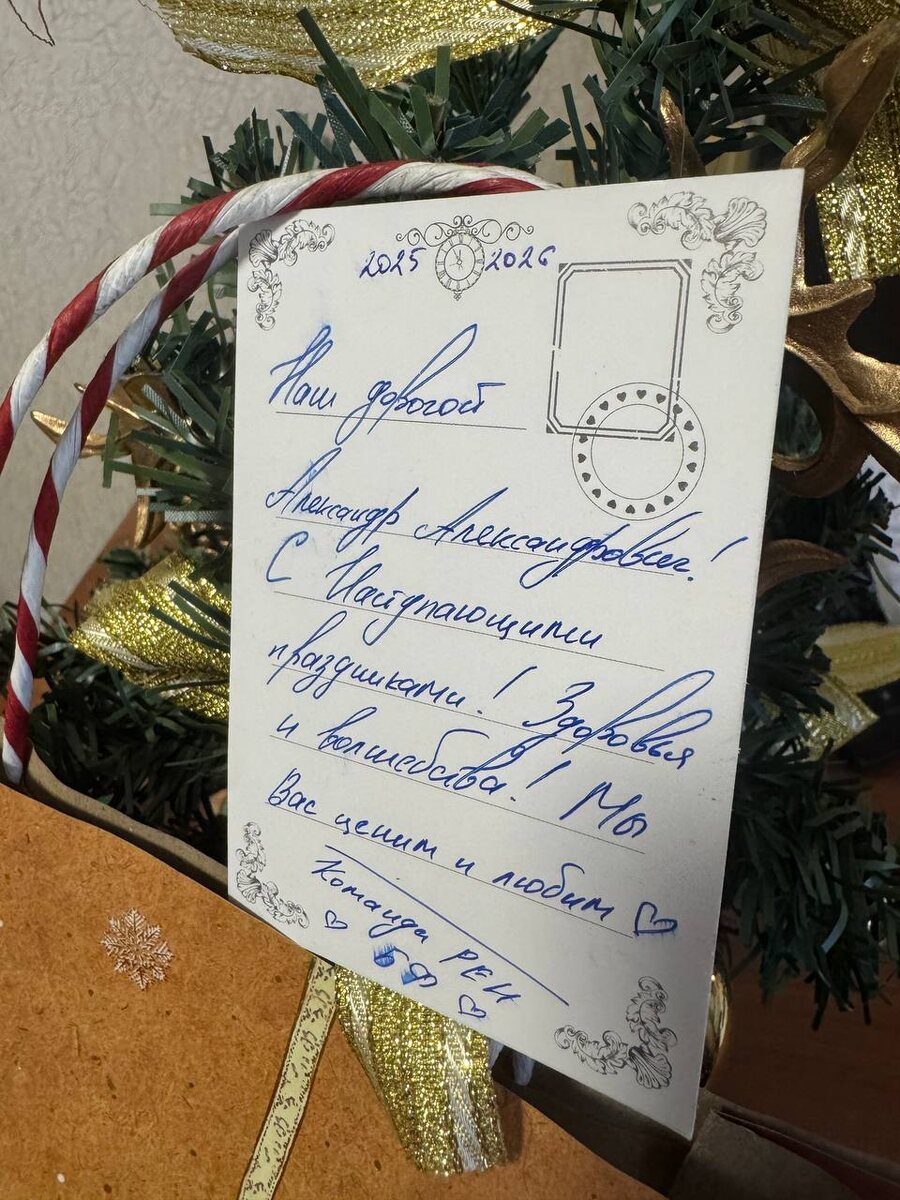 2025 2026
Наш дорогой
Александр Александрович!
С Наступающими
праздниками! Здоровья
и волшебства! Мы
Вас ценим и любим ♡
Команда РЕН
♡ БФ ♡